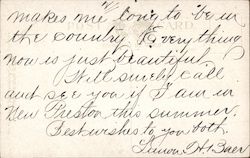 makes me long to be in
the country. Everything
now is just beautiful.
Will surely call
and see you if I am in
New Preston this summer.
Best wishes to you both.